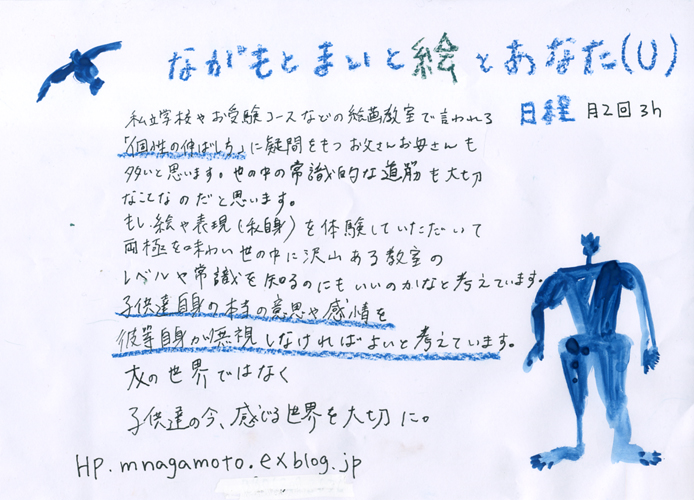 ながもとまいと絵とあなた(U)
日程 月2回 3h
私立学校やお受験コースなどの絵画教室で言われる
「個性の伸ばし方」に疑問をもつお父さんお母さんも
多いと思います。世の中の常識的な道筋も大切
なことなのだと思います。
もし絵や表現(私自身)を体験していただいて
両極を味わい世の中に沢山ある教室の
レベルや常識を知るのにもいいのかなと考えています。
子供達自身の本当の意思や感情を
彼等自身が無視しなければよいと考えています。
友の世界ではなく
子供達の今、感じる世界を大切に。
HP. mnagamoto.exblog.jp